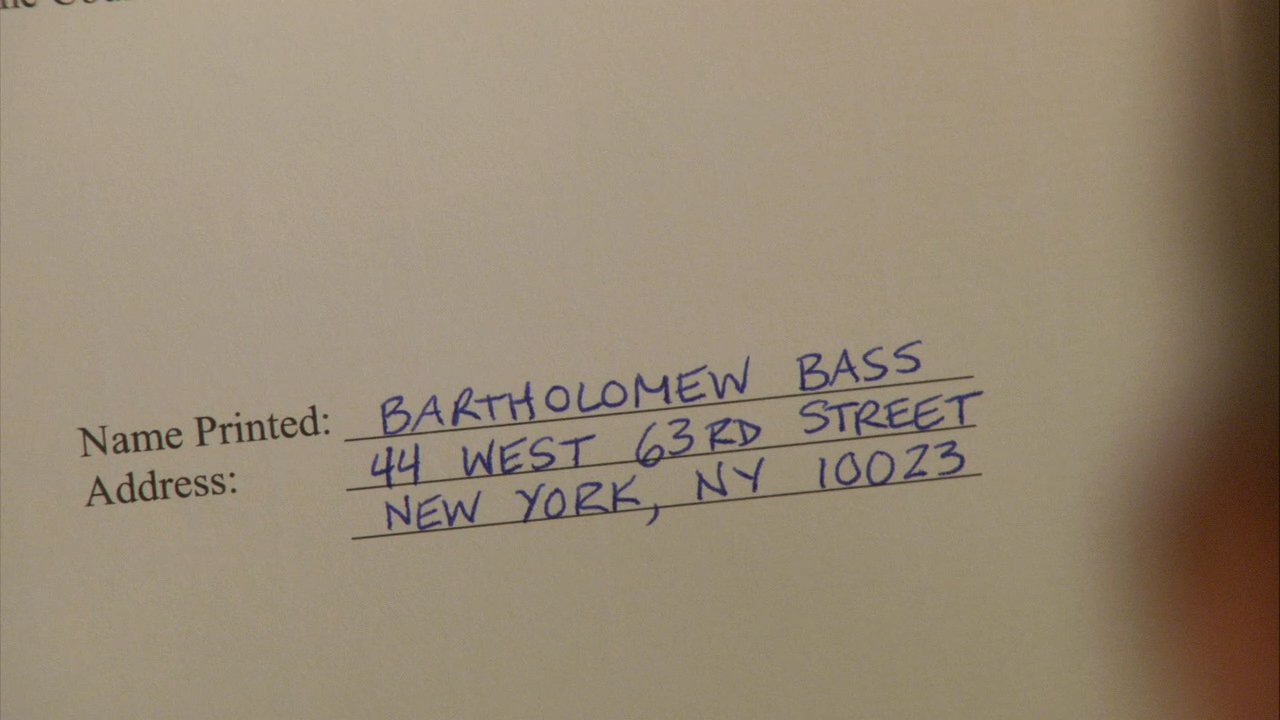 Name Printed: BARTHOLOMEW BASS
Address: 44 WEST 63RD STREET
NEW YORK, NY 10023